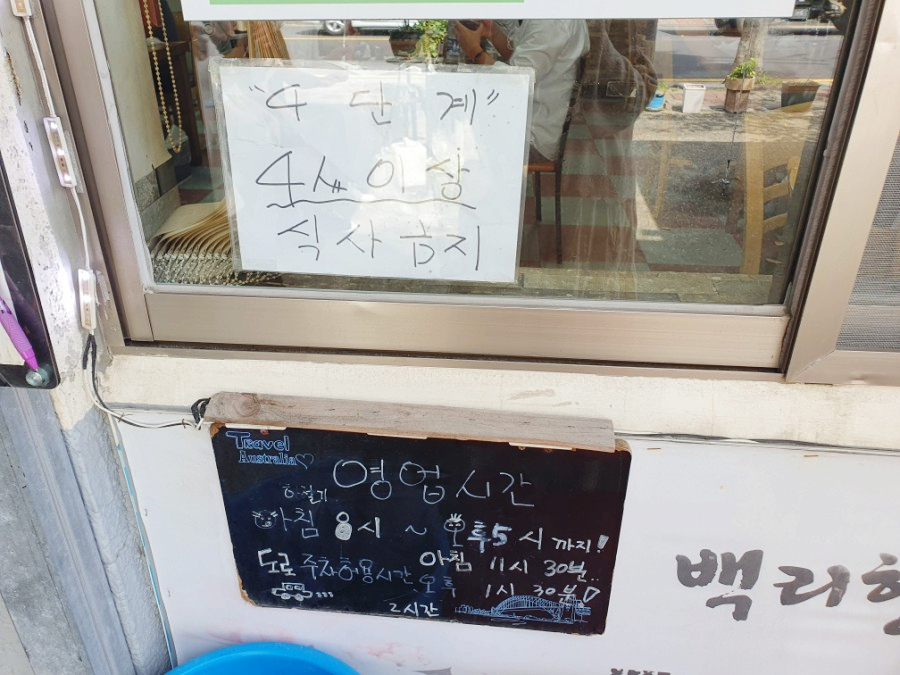 "4 단 계"
4세 이상
식사 금지
Travel
Australia♡
영업시간
하절기
아침 8시 ~ 오후 5시 까지!
도로 주차허용시간 아침 11시 30분..
오후 1시 30분
2시간
백리향